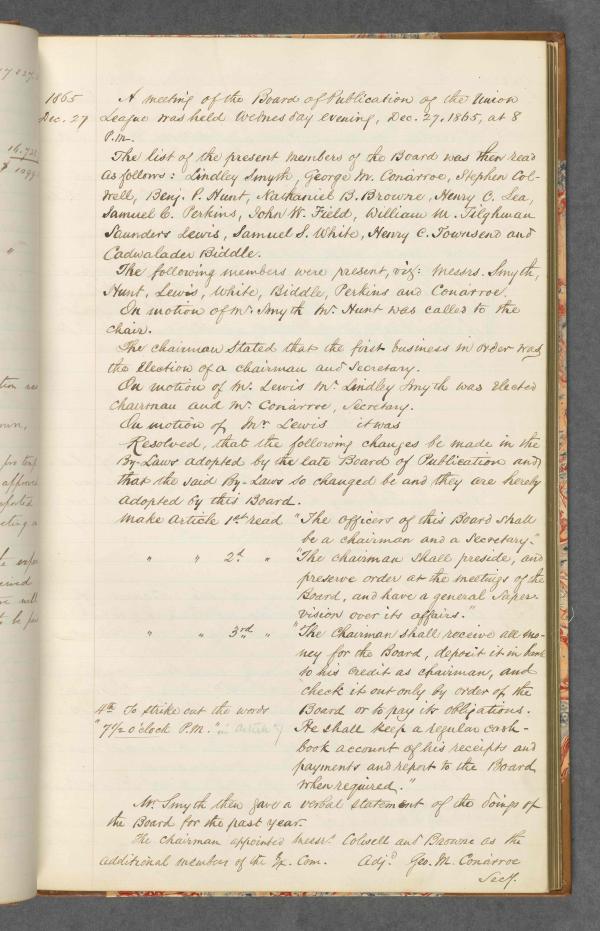 1865
Dec. 27
A meeting of the Board of Publication of the Union
League was held Wednesday evening, Dec. 27, 1865, at 8
P.M.
The list of the present members of the Board was then read
as follows: Lindley Smyth, George M. Conarroe, Stephen Col-
well, Benj. P. Hunt, Nathaniel B. Browne, Henry C. Lea,
Samuel C. Perkins, John W. Field, William M. Tilghman
Saunders Lewis, Samuel S. White, Henry C. Townsend and
Cadwalader Biddle.
The following members were present, viz: Messrs. Smyth,
Hunt, Lewis, White, Biddle, Perkins and Conarroe.
On motion of Mr. Smyth Mr. Hunt was called to the
chair.
The chairman stated that the first business in order was
the election of a chairman and Secretary.
On motion of Mr. Lewis Mr. Lindley Smyth was elected
chairman and Mr. Conarroe, Secretary.
On motion of Mr. Lewis it was
Resolved, that the following changes be made in the
By-Laws adopted by the late Board of Publication and
that the said By-Laws so changed be and they are hereby
adopted by this Board.
Make Article 1st read "The officers of this Board shall
be a chairman and a Secretary."
" " 2d " "The chairman shall preside, and
preserve order at the meetings of the
Board, and have a general super-
vision over its affairs."
" " 3rd " "The Chairman shall receive all mo-
ney for the Board, deposit it in bank
to his credit as chairman, and
check it out only by order of the
4th To strike out the words Board or to pay its obligations.
"7 1/2 o'clock P.M." in Article He shall keep a regular cash-
book account of his receipts and
payments and report to the Board
when required."
Mr. Smyth then gave a verbal statement of the doings of
the Board for the past year.
The chairman appointed Messrs Colwell and Browne as the
additional member of the Ex. Com. Adjd. Geo. M. Conarroe
Secy.